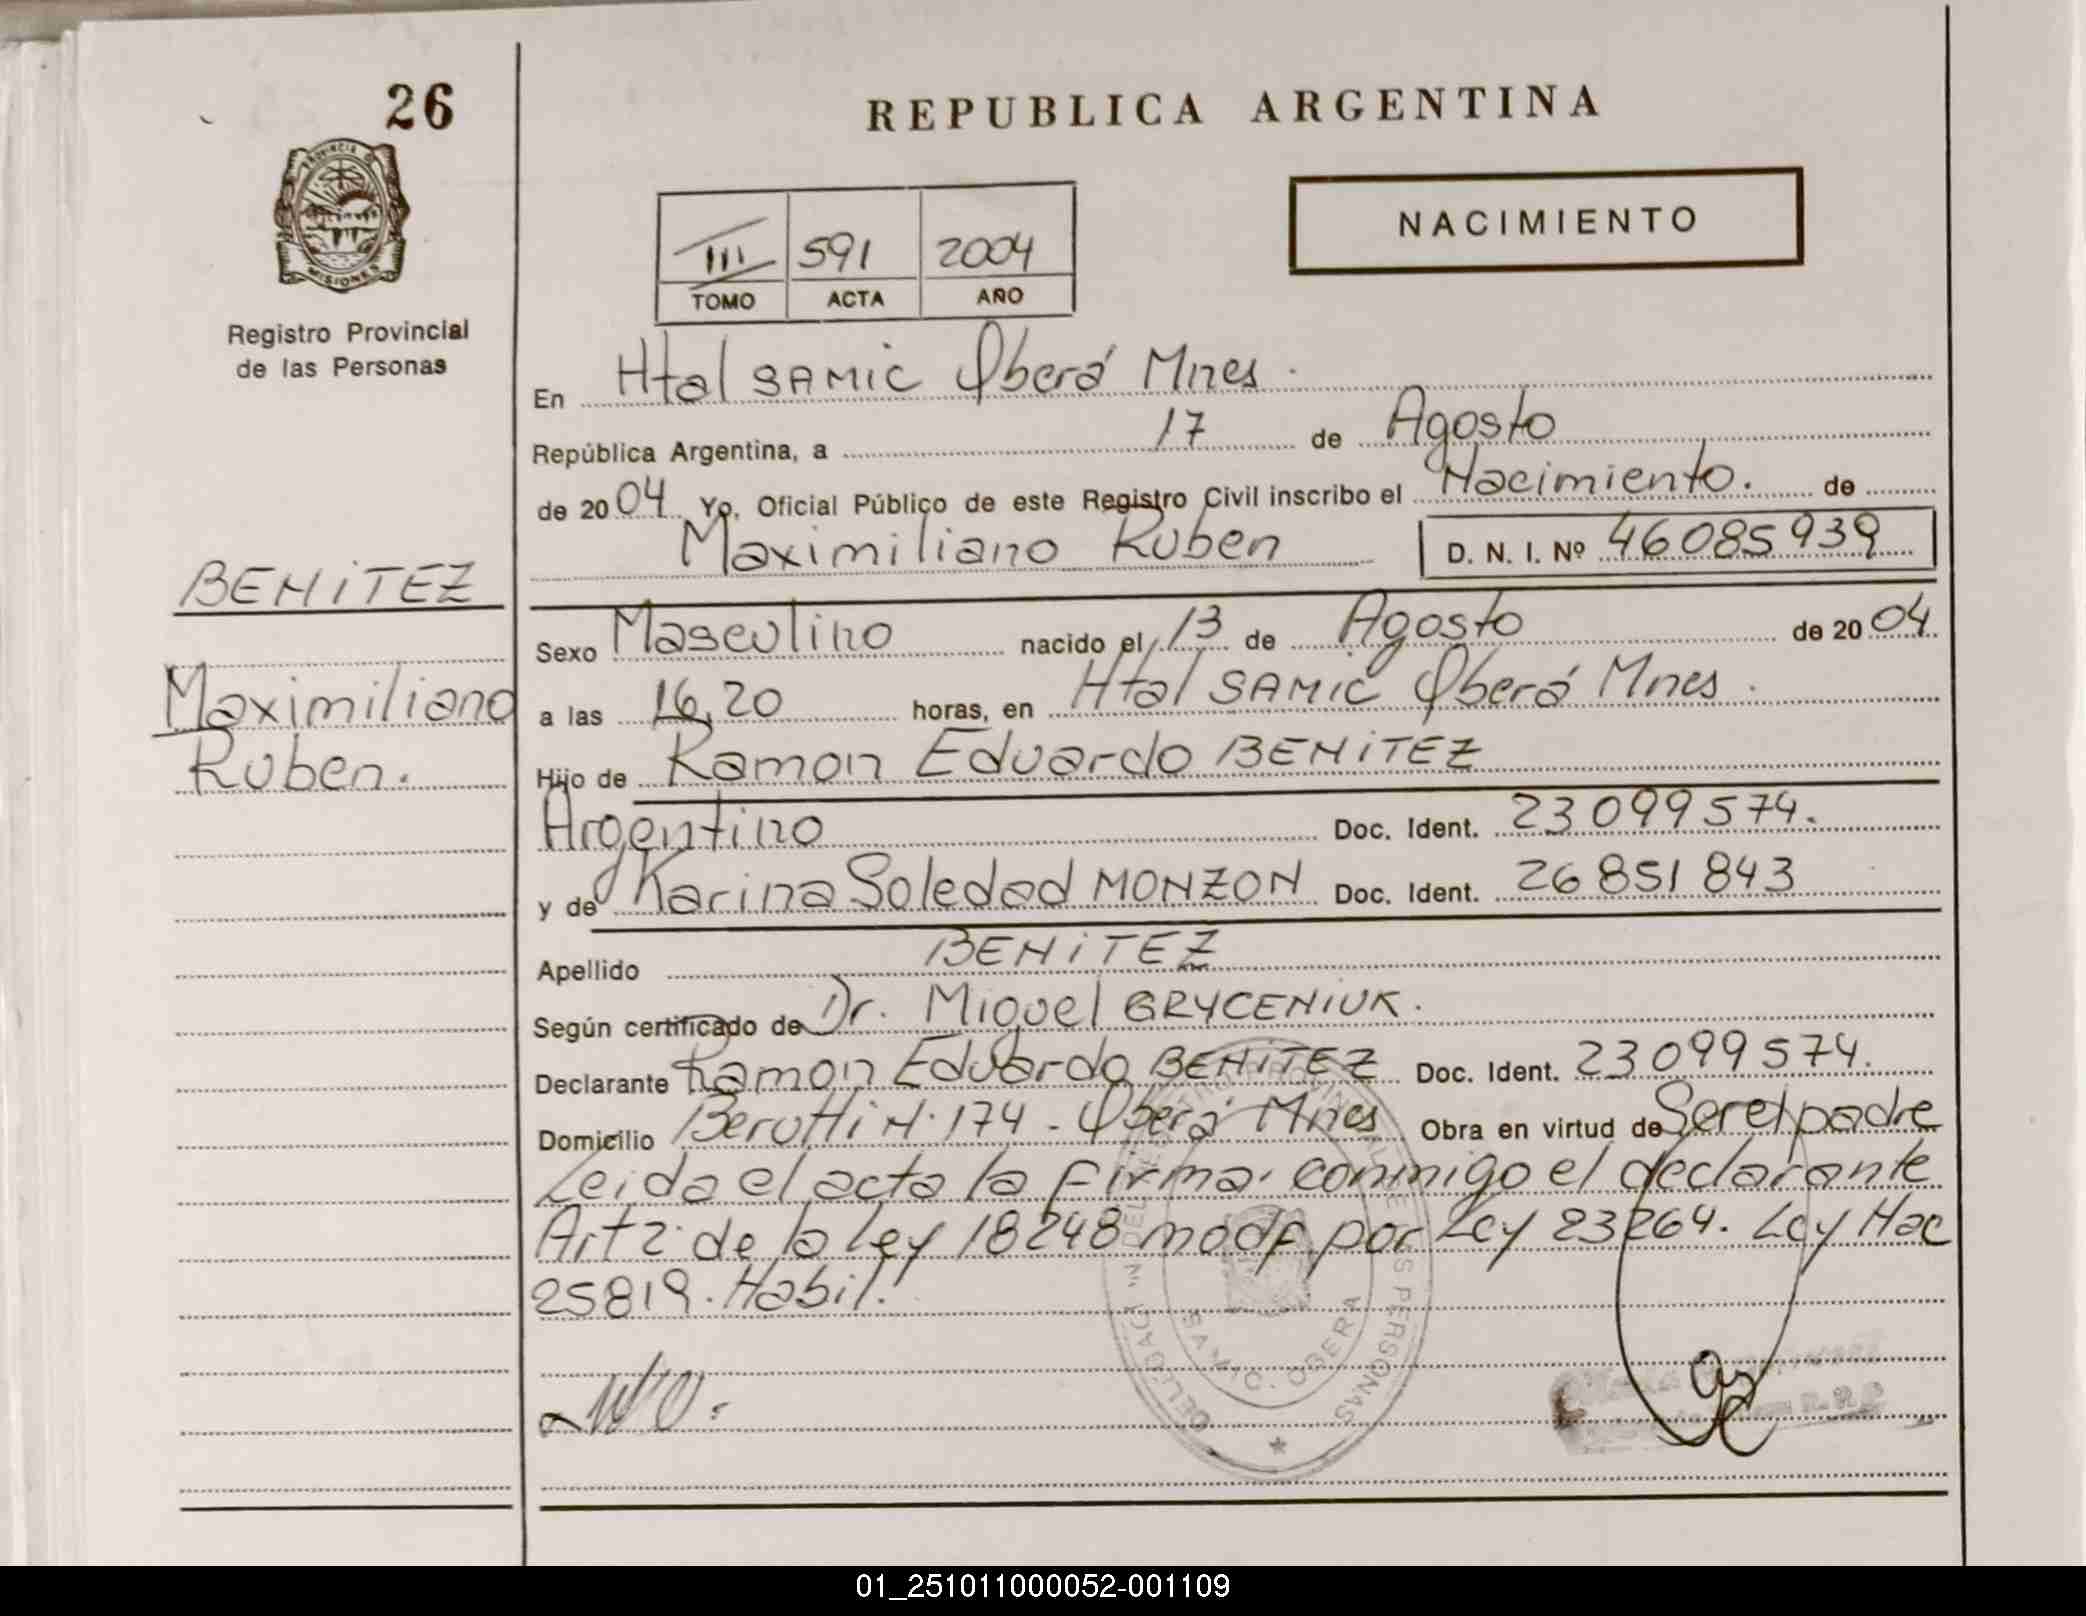 26
REPUBLICA ARGENTINA
PROVINCIA D
MISIONES
NACIMIENTO
III 591 2004
TOMO ACTA AÑO
Registro Provincial
de las Personas
En Htal SAMIC Oberá Mnes.
República Argentina, a 17 de Agosto
de 2004 Yo, Oficial Público de este Registro Civil inscribo el Nacimiento. de
Maximiliano Ruben D. N. I. Nº 46085939
BENITEZ
Maximiliano
Ruben.
Sexo Masculino nacido el 13 de Agosto de 2004
a las 16,20 horas, en Htal SAMIC Oberá Mnes.
Hijo de Ramon Eduardo BENITEZ
Argentino Doc. Ident. 23099574.
y de Karina Soledad MONZON Doc. Ident. 26851843
Apellido BENITEZ
Según certificado de Dr. Miguel GRYCENIUK.
Declarante Ramon Eduardo BENITEZ Doc. Ident. 23099574.
Domicilio Berutti N. 174 - Oberá Mnes Obra en virtud de Ser el padre
Leida el acta la firma conmigo el declarante
Art 2 de la ley 18248 modf por Ley 23264. Ley Nac
25819. Habil.
PERSONAS
SAMIC. OBERA
01_251011000052-001109